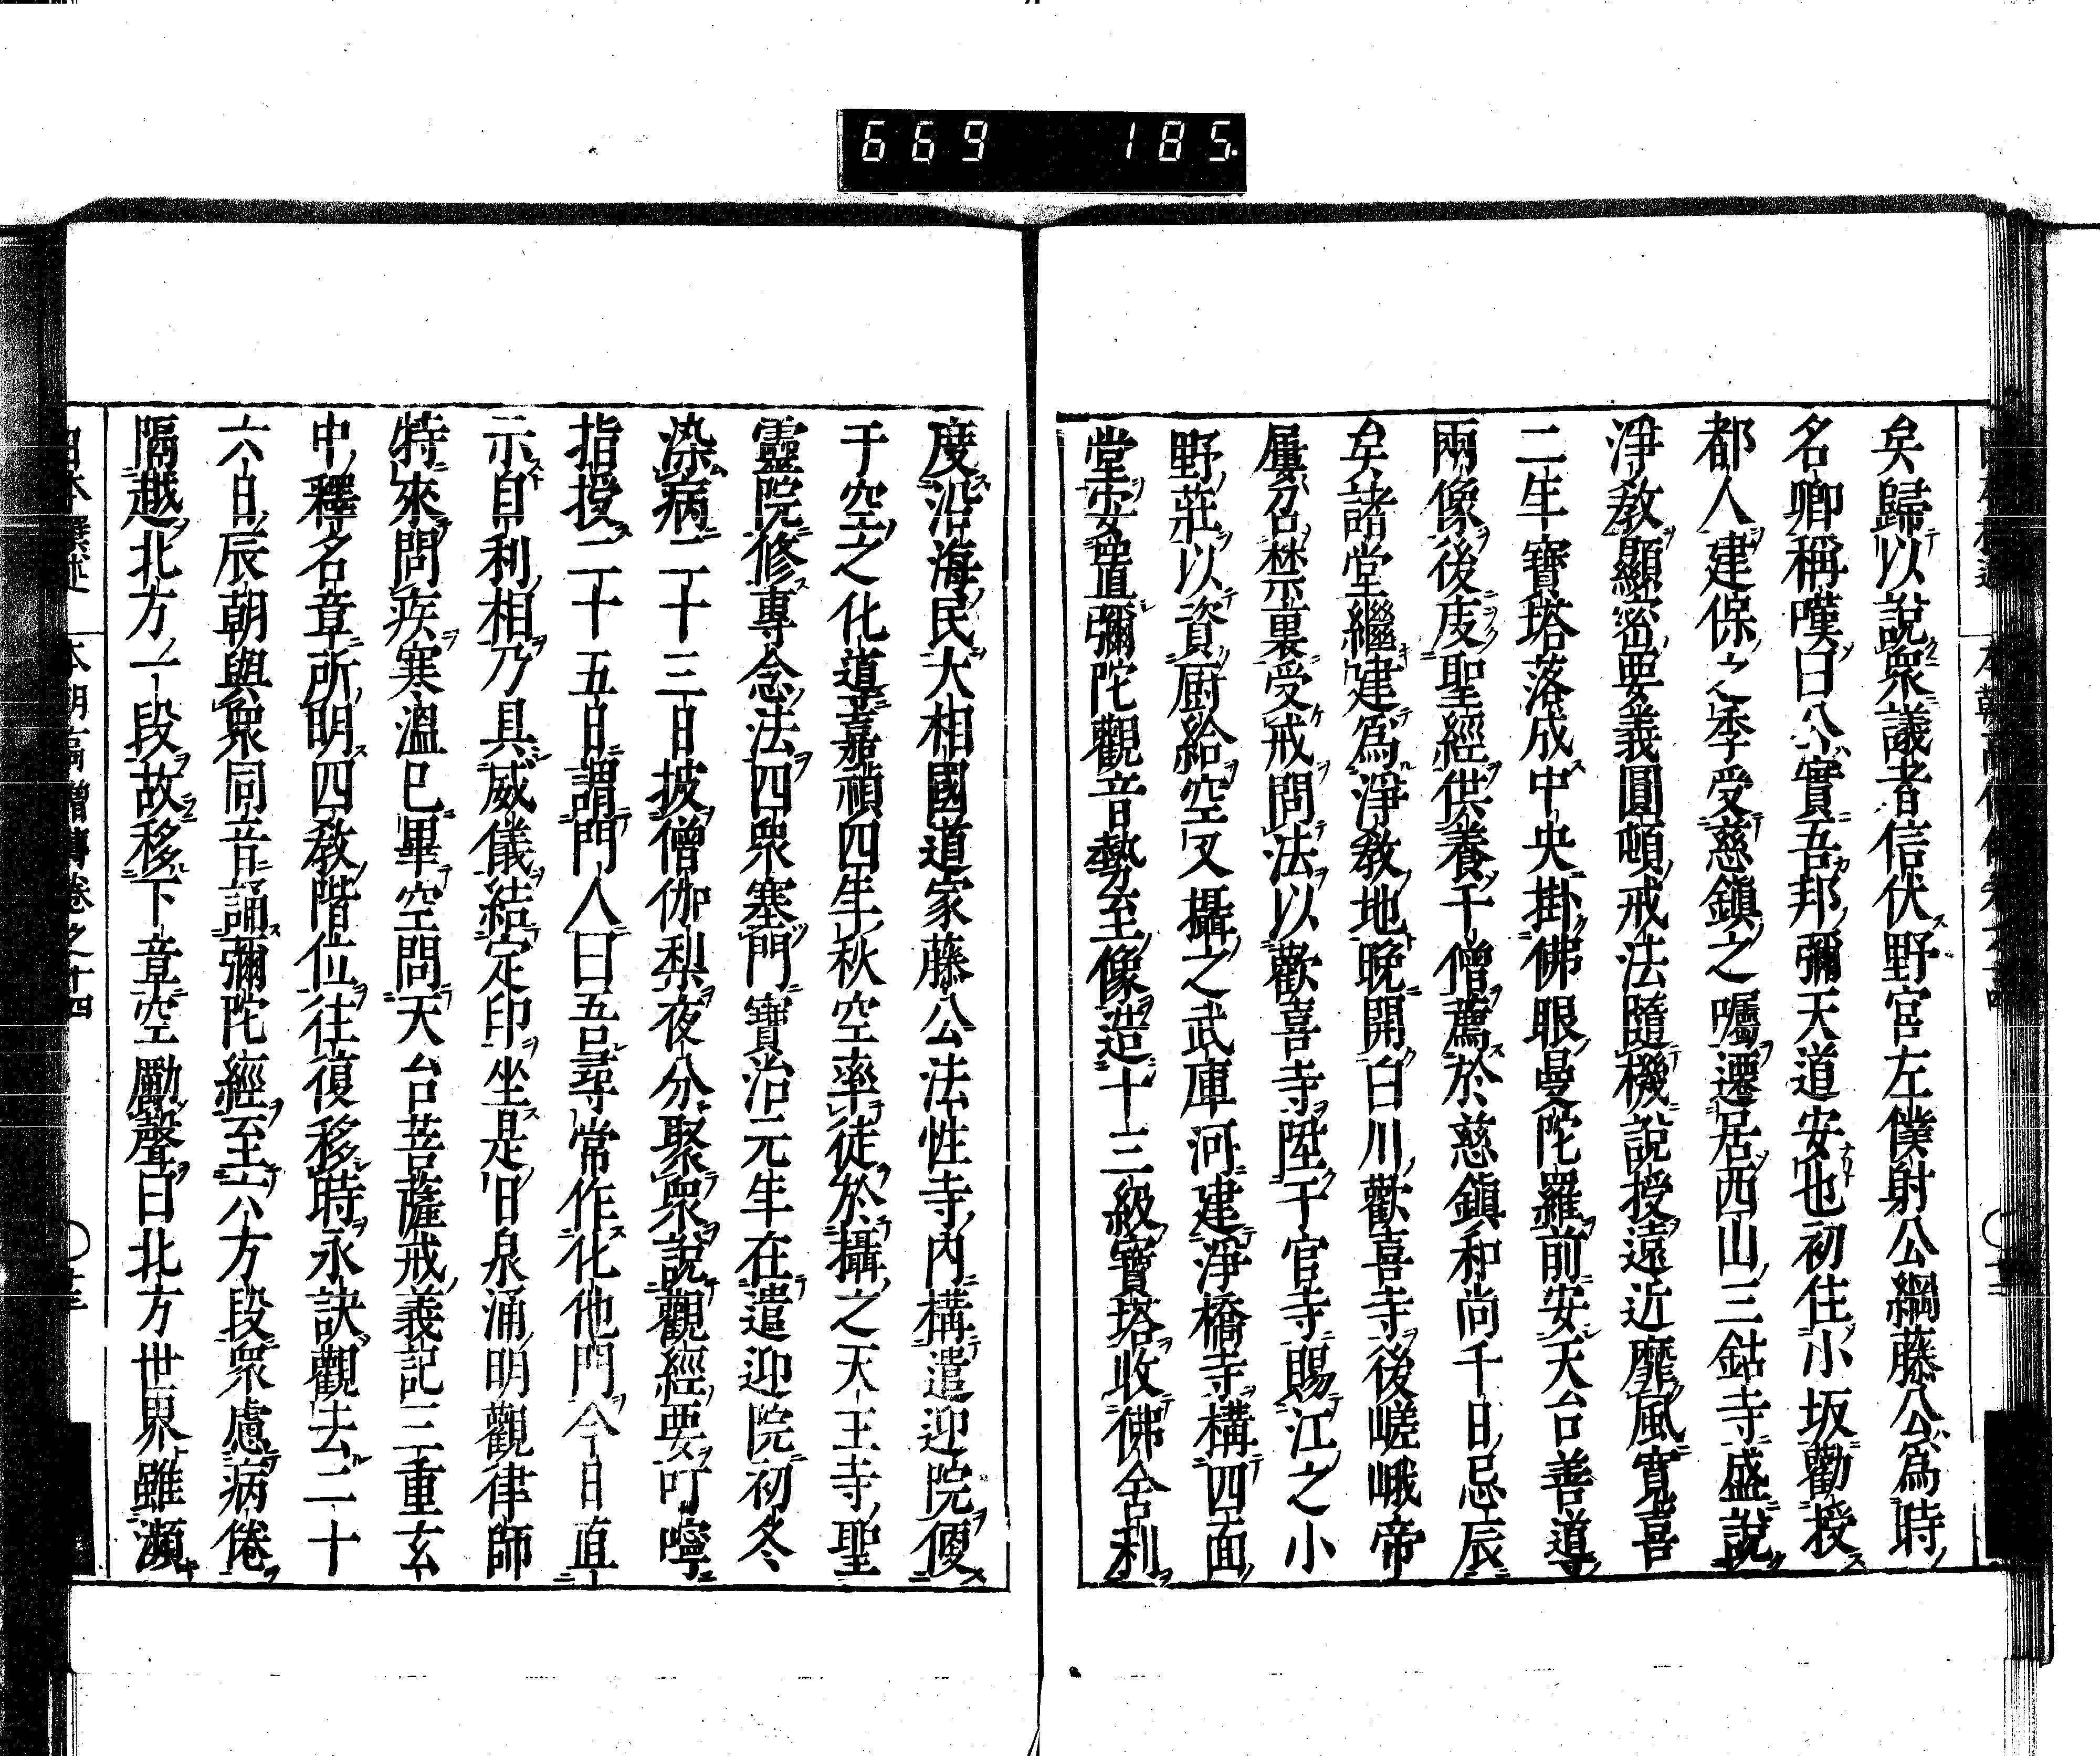 669 185.
矣歸以說衆議者信伏野宮左僕射公綱藤公爲時
名卿稱嘆曰公實吾邦彌天道安也初住小坂勸授
都人建保之季受慈鎭之囑遷居西山三鈷寺盛說
淨教顯密要義圓頓戒法隨機說授遠近靡風寬喜
二年寶塔落成中央掛佛眼曼陀羅前安天台善導
兩像後庋聖經供養千僧薦於慈鎭和尚千日忌辰
矣諸堂繼建爲淨教地晚開白川歡喜寺後嵯峨帝
屢召禁裏受戒問法以歡喜寺陞于官寺賜江之小
野莊以資厨給空又攝之武庫河建淨橋寺構四面
堂安置彌陀觀音勢至像造十三級寶塔收佛舍利
度沿海民大相國道家藤公法性寺內構遣迎院便
于空之化導嘉禎四年秋空率徒於攝之天王寺聖
靈院修專念法四衆塞門寶治元年在遣迎院初冬
染病二十三日披僧伽梨夜分聚衆說觀經要叮嚀
指授二十五日謂門人曰吾尋常作化他門今日直
示自利相乃具威儀結定印坐是日泉涌明觀律師
特來問疾寒溫已畢空問天台菩薩戒義記三重玄
中釋名章所明四教階位往復移時永訣觀去二十
六日辰朝與衆同音誦彌陀經至六方段衆慮病倦
隔越北方一段故移下章空勵聲曰北方世界雖瀕
日本撰述 本朝高僧傳卷之十四